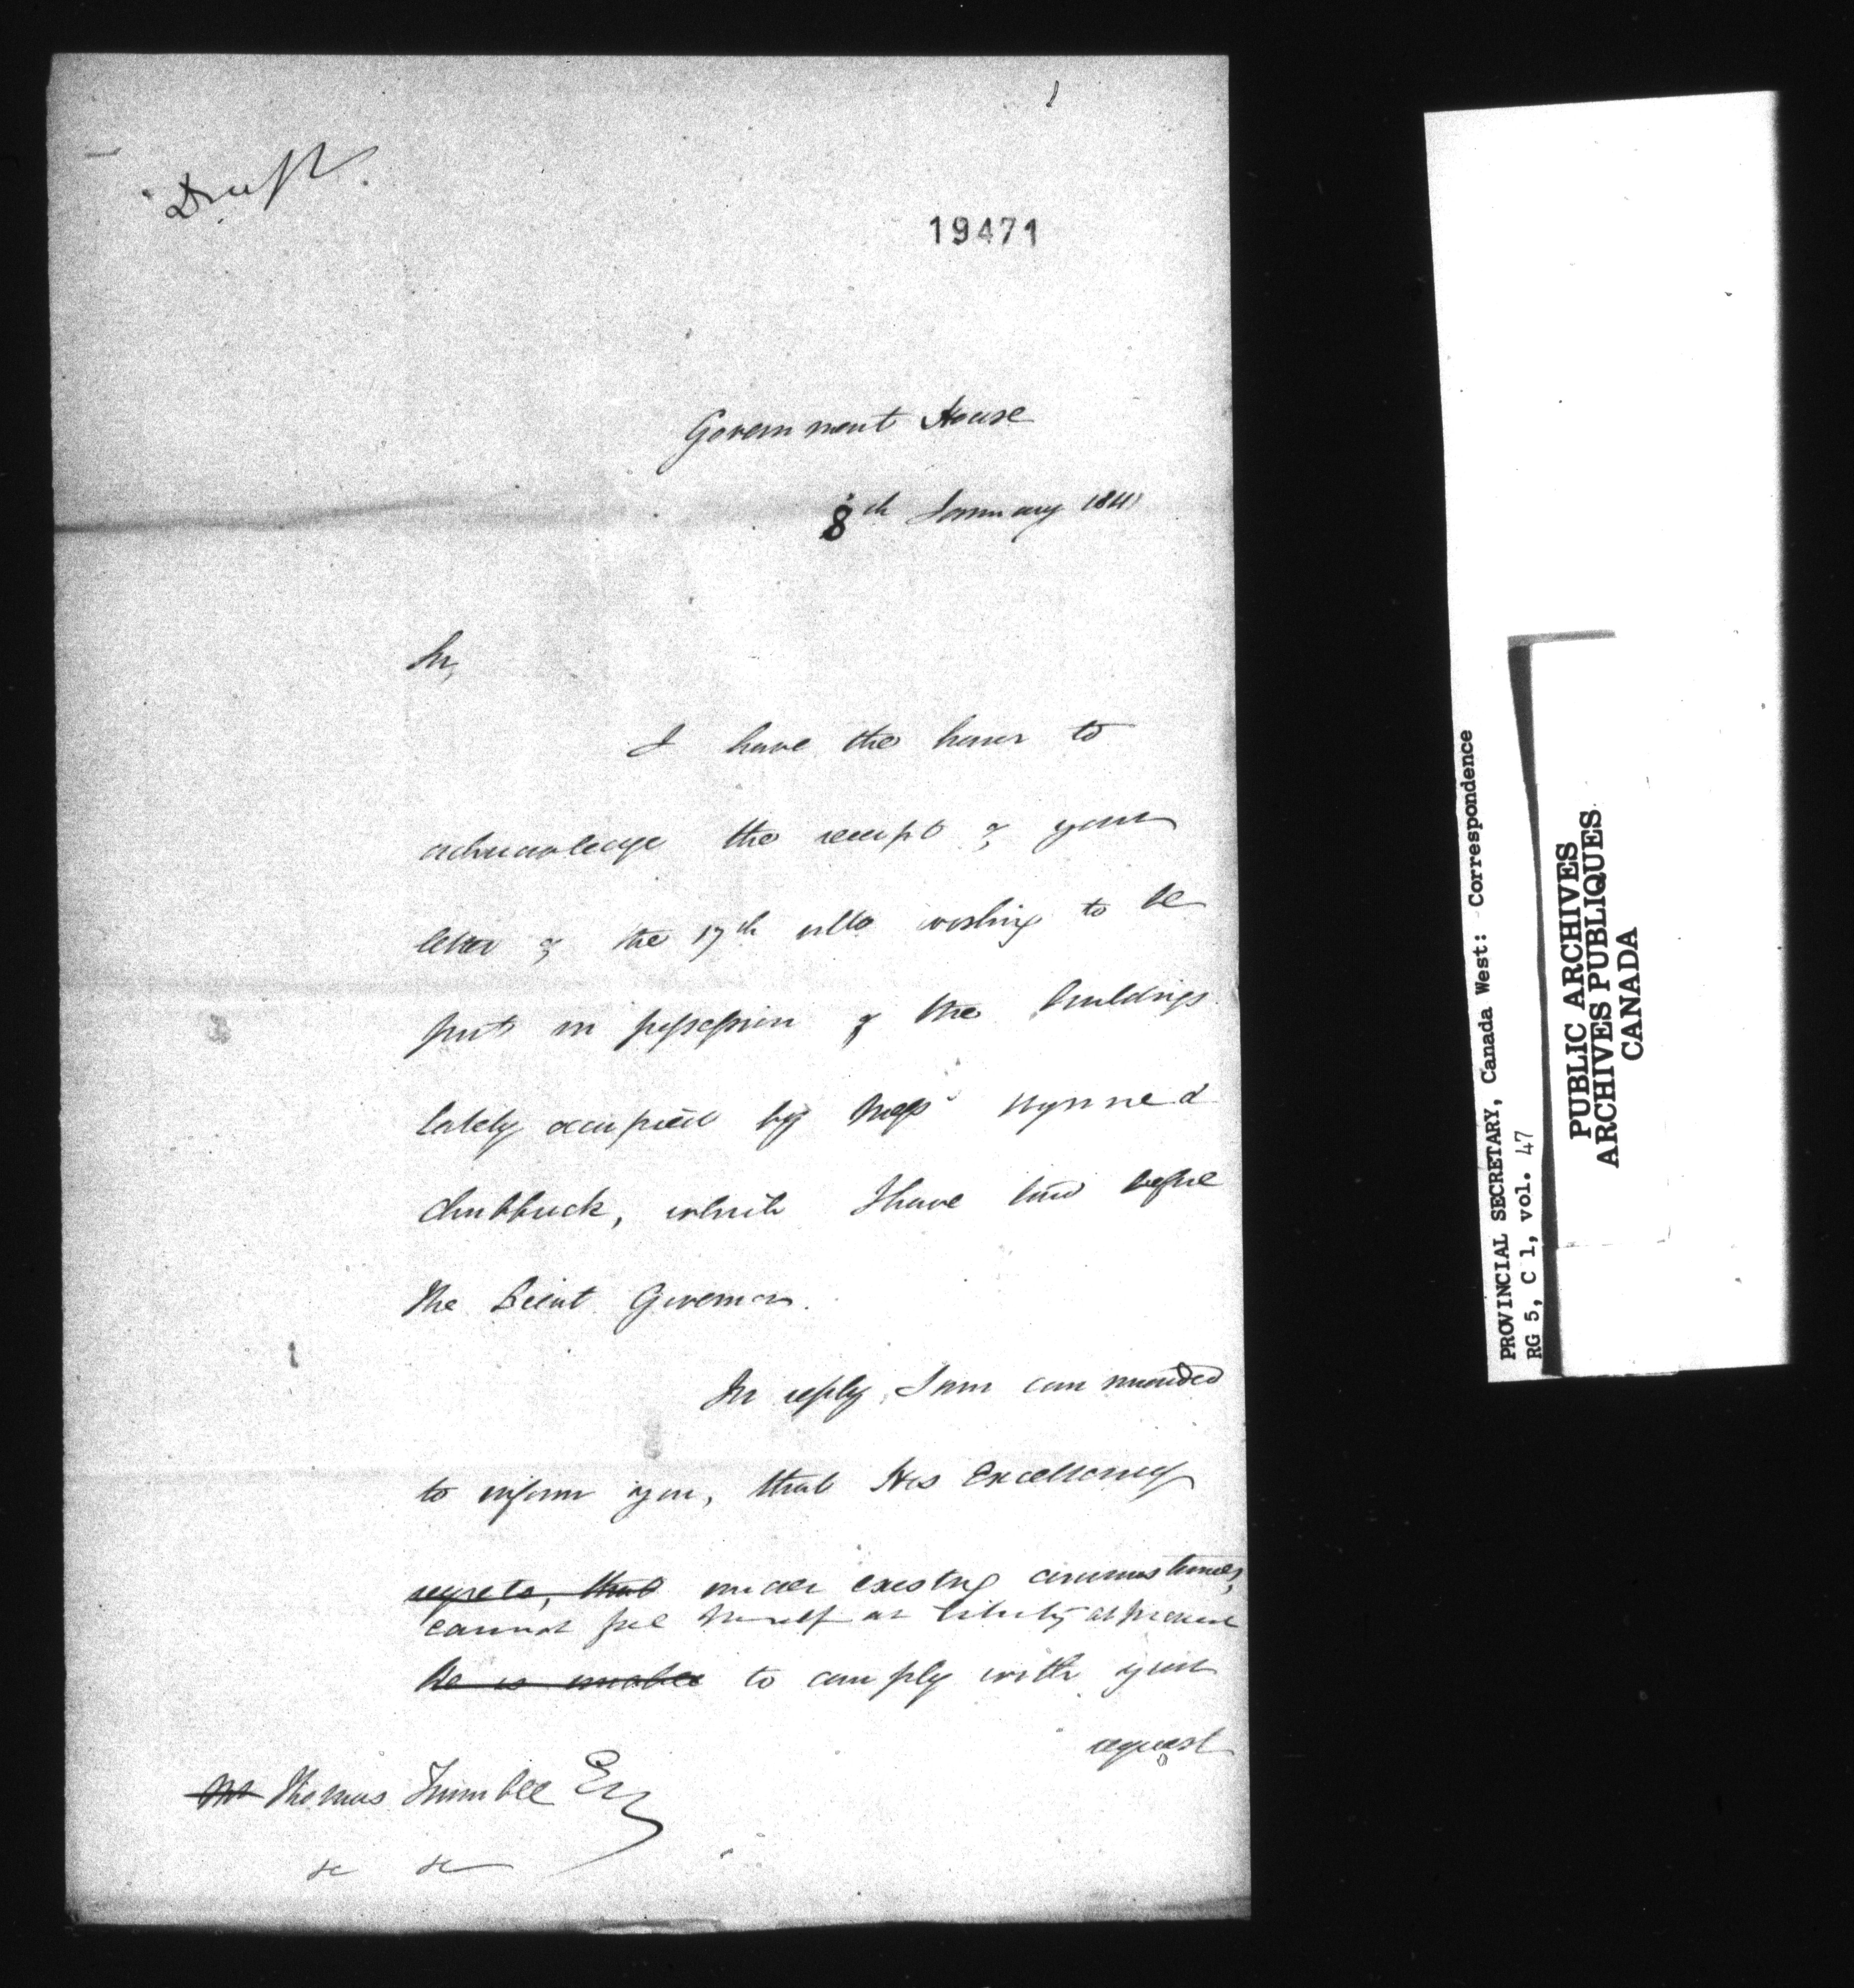 Draft
19471
Government House
8th January 1841
Sir,
I have the honor to
acknowledge the receipt of your
letter of the 17th ulto wishing to be
put in possession of the buildings
lately occupied by Messrs Wynne &
Chubbuck, which I have laid before
The Lieut Governor.
In reply, I am commanded
to inform you, that His Excellency
regrets, that under existing circumstances,
cannot feel himself at liberty at present
he is unable to comply with your
request
Mr Thomas Trimble Esq
&c &c
PROVINCIAL SECRETARY, Canada West: Correspondence
RG 5, C 1, vol. 47
PUBLIC ARCHIVES
ARCHIVES PUBLIQUES
CANADA